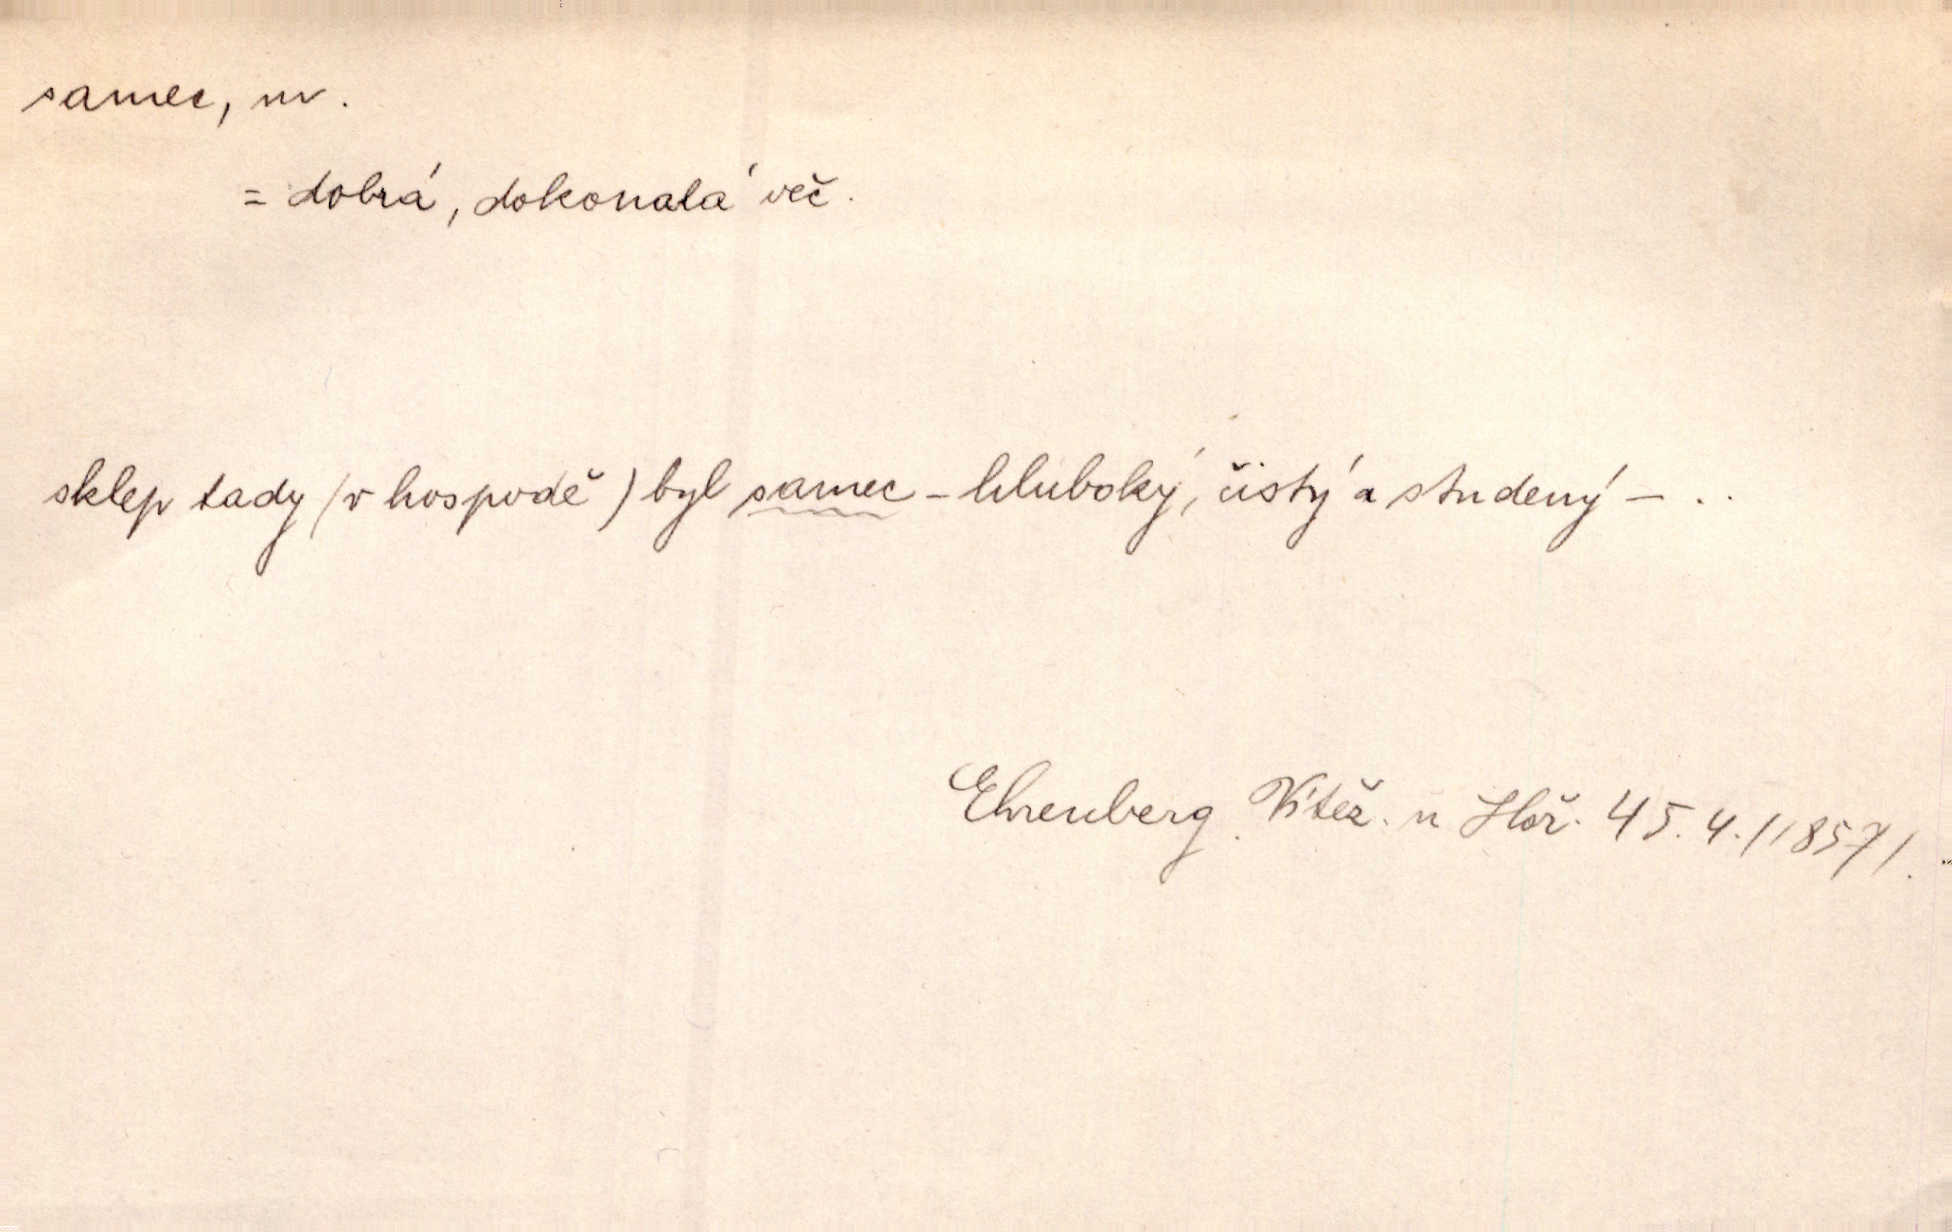 samec, m.
= dobrá, dokonalá věc.
sklep tady (v hospodě) byl samec – hluboký, čistý a studený – ..
Ehrenberg. Vítěz. u Hoř. 45. 4. /1857/.